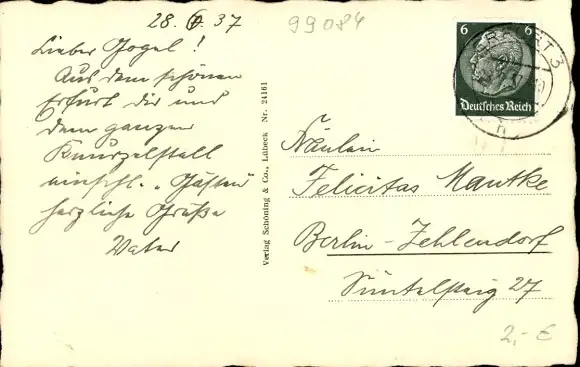 28. 6. 37
99084
Lieber Gogel!
Aus dem schönen
Erfurt dir und
dem ganzen
Knurzelstall
einschl. „Gästen"
herzliche Grüße
Vater
Verlag Schöning & Co., Lübeck Nr. 24161
6 6
Deutsches Reich
ERFURT 3
h
Fräulein
Felicitas Mantke
Berlin-Zehlendorf
Süntelsteig 27
2,- €